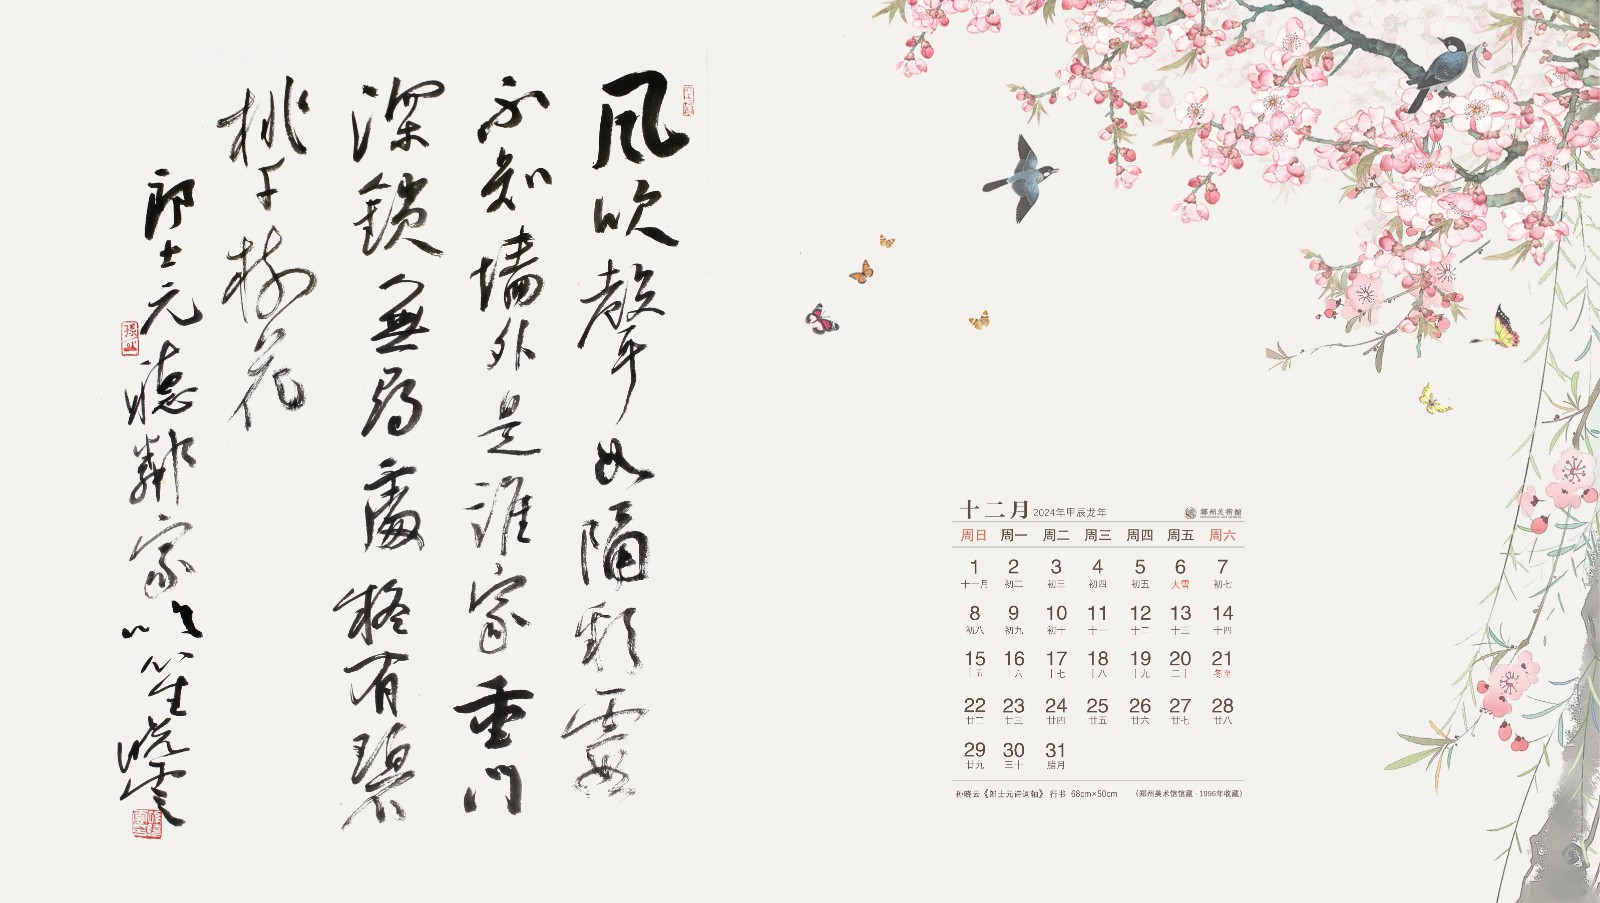 凤吹聲如隔彩霞
不知墙外是誰家重門
深鎖無尋處疑有碧
桃千樹花
郎士元聽鄰家吹笙曉雲
十二月 2024年甲辰龙年 鄭州美術館
周日 周一 周二 周三 周四 周五 周六
1 2 3 4 5 6 7
十一月 初二 初三 初四 初五 大雪 初七
8 9 10 11 12 13 14
初八 初九 初十 十一 十二 十三 十四
15 16 17 18 19 20 21
十五 十六 十七 十八 十九 二十 冬至
22 23 24 25 26 27 28
廿二 廿三 廿四 廿五 廿六 廿七 廿八
29 30 31
廿九 三十 腊月
孙晓云《郎士元诗词轴》 行书 68cm×50cm （郑州美术馆馆藏 · 1996年收藏）